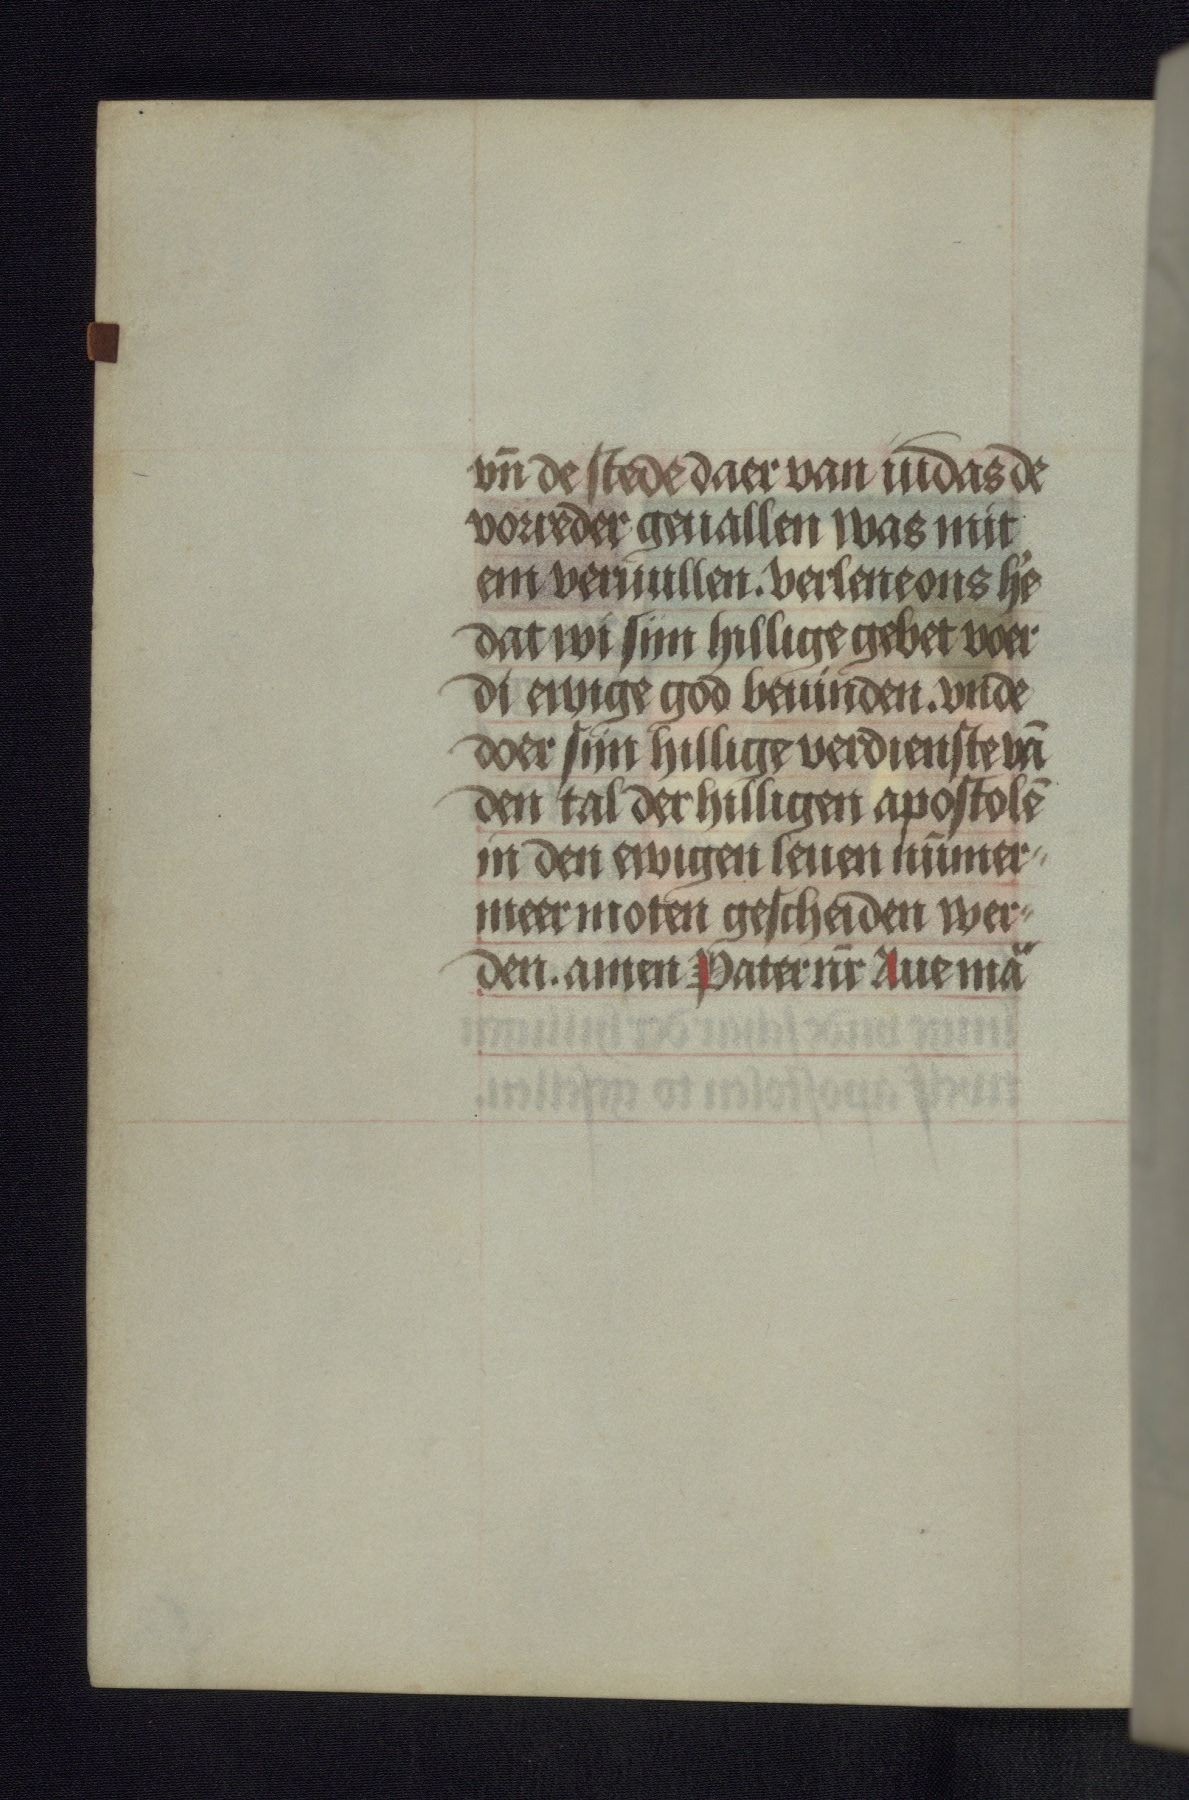 vn̄ de stede daer van iudas de
vorreder geuallen was mit
em veruullen. verlene ons he᷎
dat wi sijn hillige gebet voer
di ewige god beuinden. vnde
doer sijn hillige verdienste vā
den tal der hilligen apostolē
in den ewigen leuen nūmer⸗
meer moten gescheiden wer⸗
den. amen Pater nr̄ Aue mā